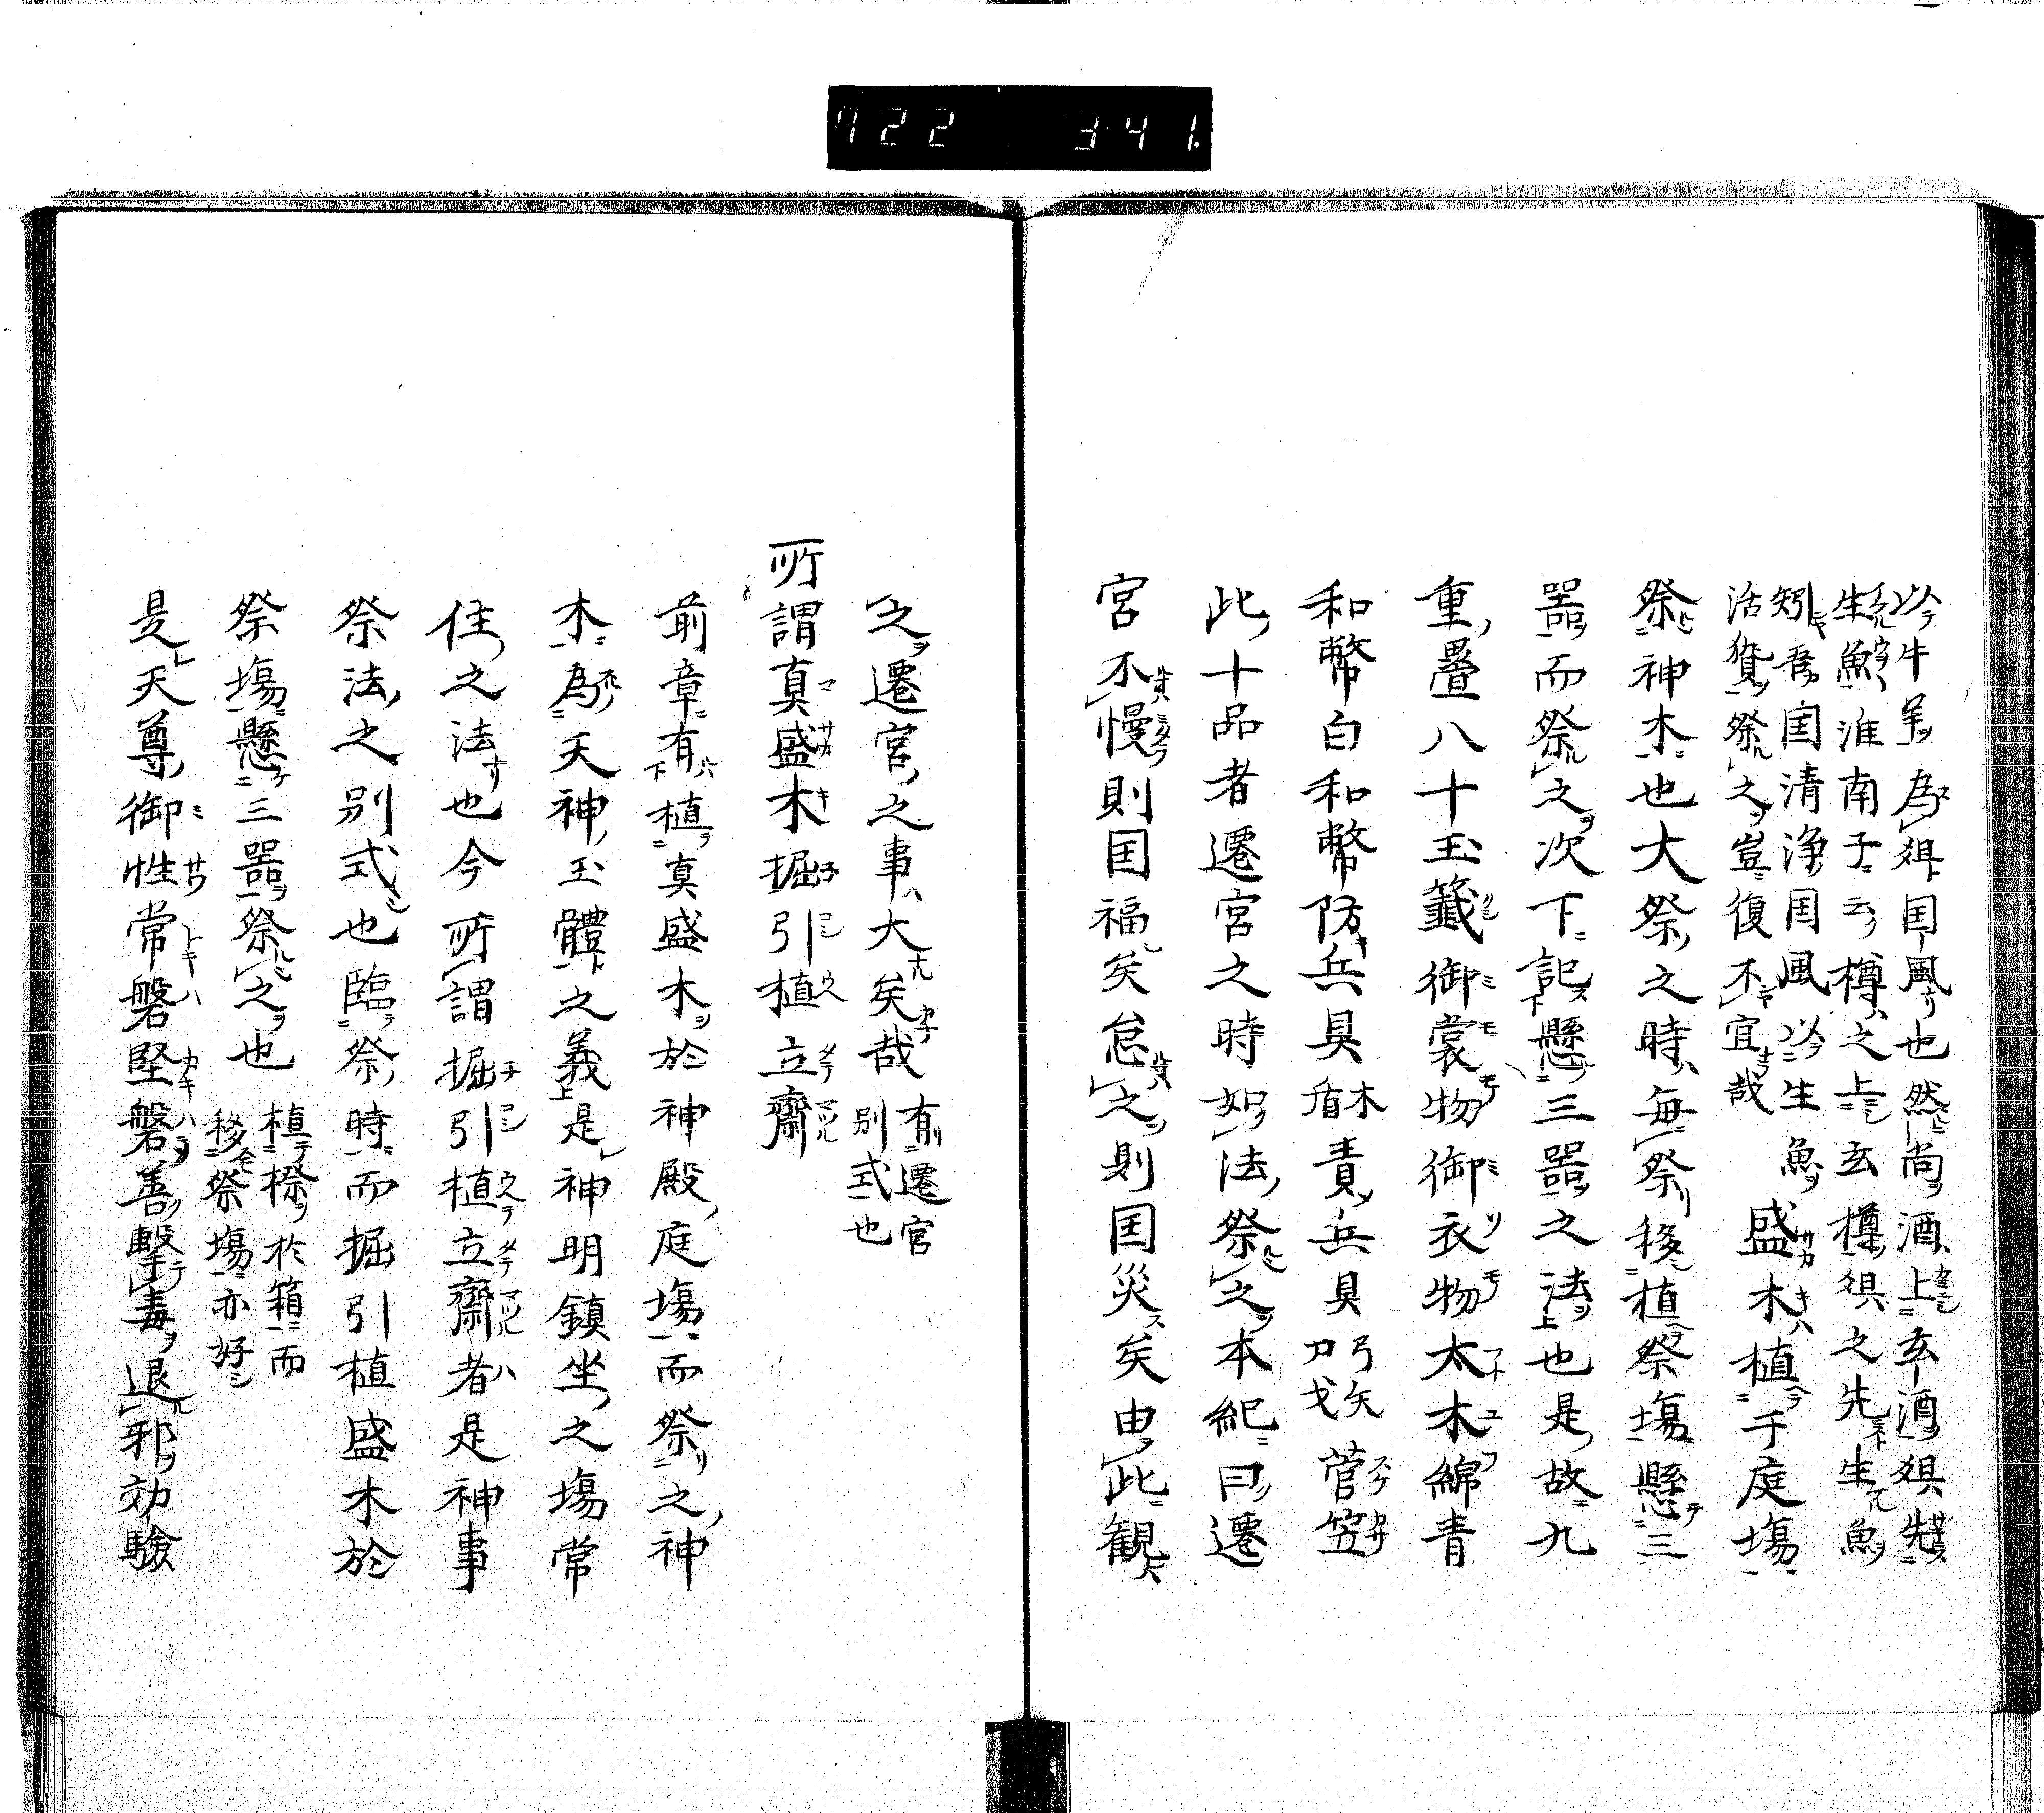 722 341
以牛羊為俎国風也然尚酒上玄酒俎先
生魚淮南子云樽之上玄樽俎之先生魚
矧吾国清浄国風以生魚
活貨祭之豈復不宜哉
盛木植于庭塲
祭神木也大祭之時毎祭移植祭塲懸三
噐而祭之次下記懸三噐之法也是故九
重疊八十玉籤御裳物御衣物太木綿青
和幣白和幣防兵具木盾責兵具弓矢刀戈菅笠
此十品者遷宮之時如法祭之本紀曰遷
宮不慢則国福矣怠之則国災矣由此観
之遷宮之事大矣哉有遷宮別式也
所謂真盛木掘引植立齋
前章有植真盛木於神殿庭塲而祭之神
木為天神玉體之義是神明鎮坐之塲常
住之法也今所謂掘引植立齋者是神事
祭法之別式也臨祭時而掘引植盛木於
祭塲懸三噐祭之也植榊於箱而移祭塲亦好
是天尊御性常磐堅磐善撃毒退邪効驗